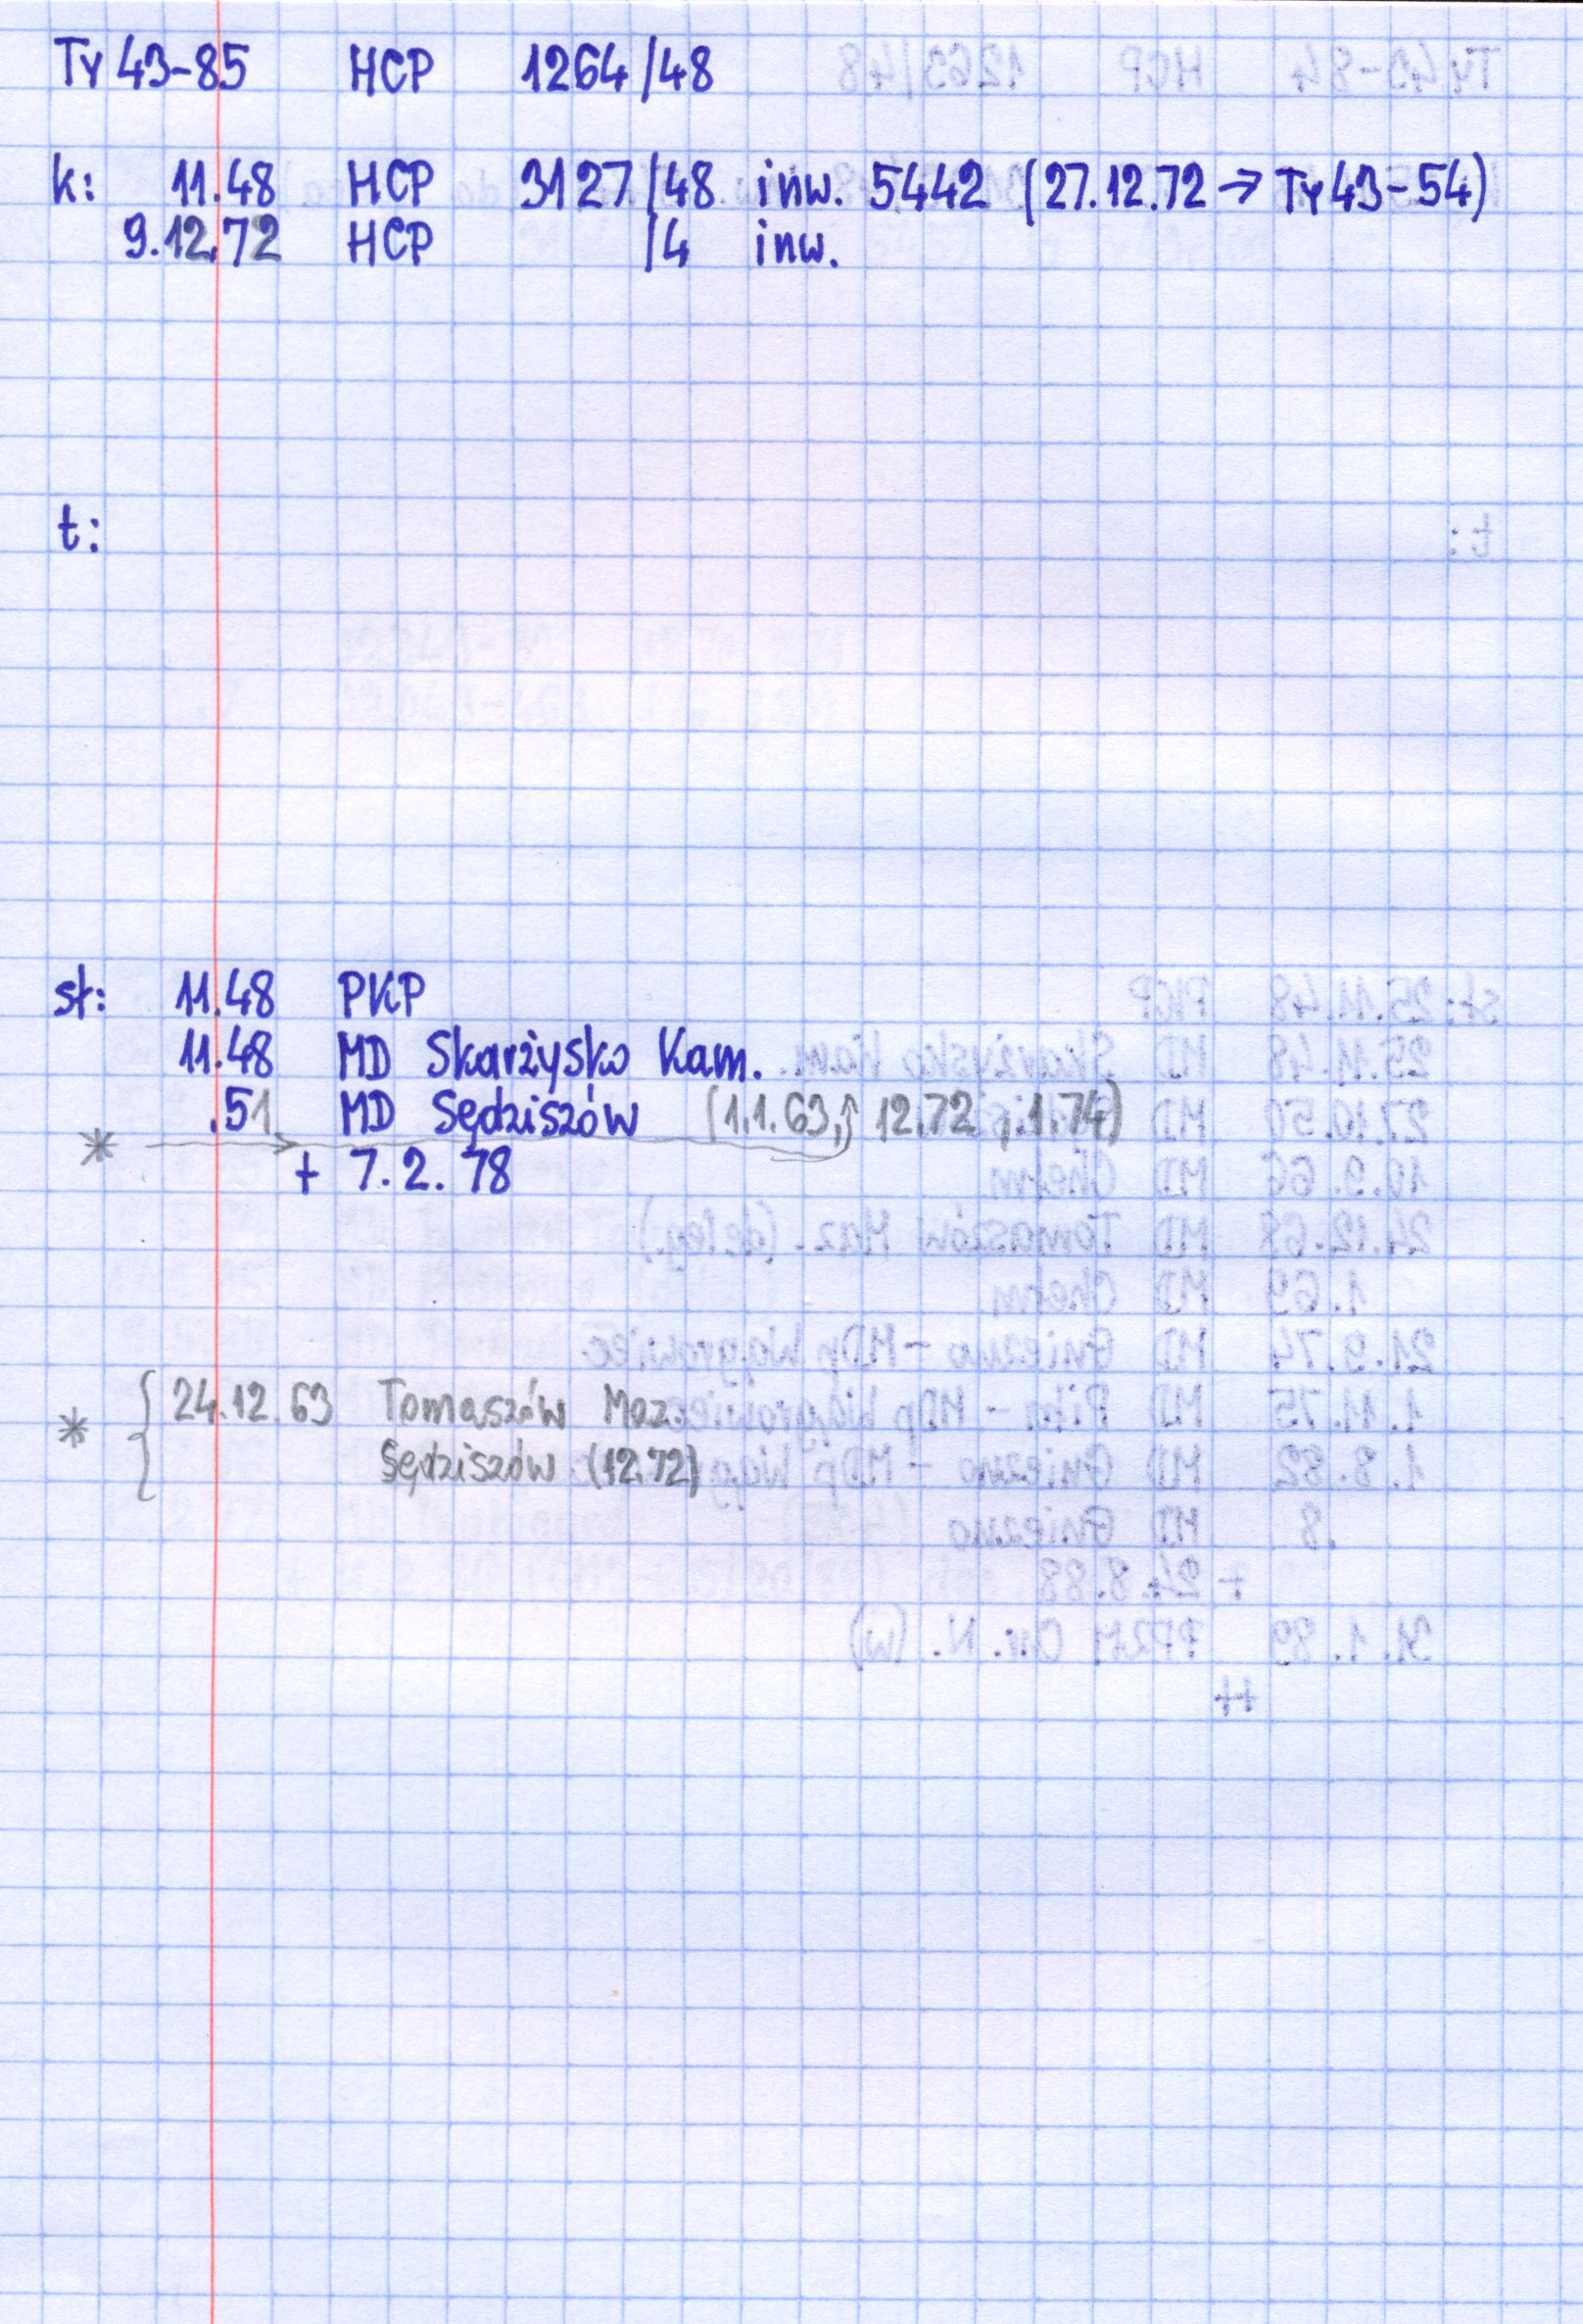 Ty 43-85 HCP 1264/48
k: 11.48 HCP 3127/48 inw. 5442 (27.12.72 → Ty 43-54)
9.12.72 HCP /4 inw.
t:
st: 11.48 PKP
11.48 MD Skarżysko Kam.
.51 MD Sędziszów (1.1.63, 12.72, 1.74)
*
+ 7.2.78
* { 24.12.63 Tomaszów Maz.
Sędziszów (12.72)